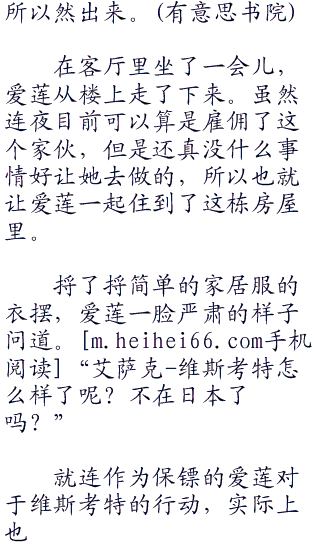 所以然出来。(有意思书院)
在客厅里坐了一会儿，
爱莲从楼上走了下来。虽然
连夜目前可以算是雇佣了这
个家伙，但是还真没什么事
情好让她去做的，所以也就
让爱莲一起住到了这栋房屋
里。
捋了捋简单的家居服的
衣摆，爱莲一脸严肃的样子
问道。[m.heihei66.com手机
阅读]“艾萨克-维斯考特怎
么样了呢？不在日本了
吗？”
就连作为保镖的爱莲对
于维斯考特的行动，实际上
也